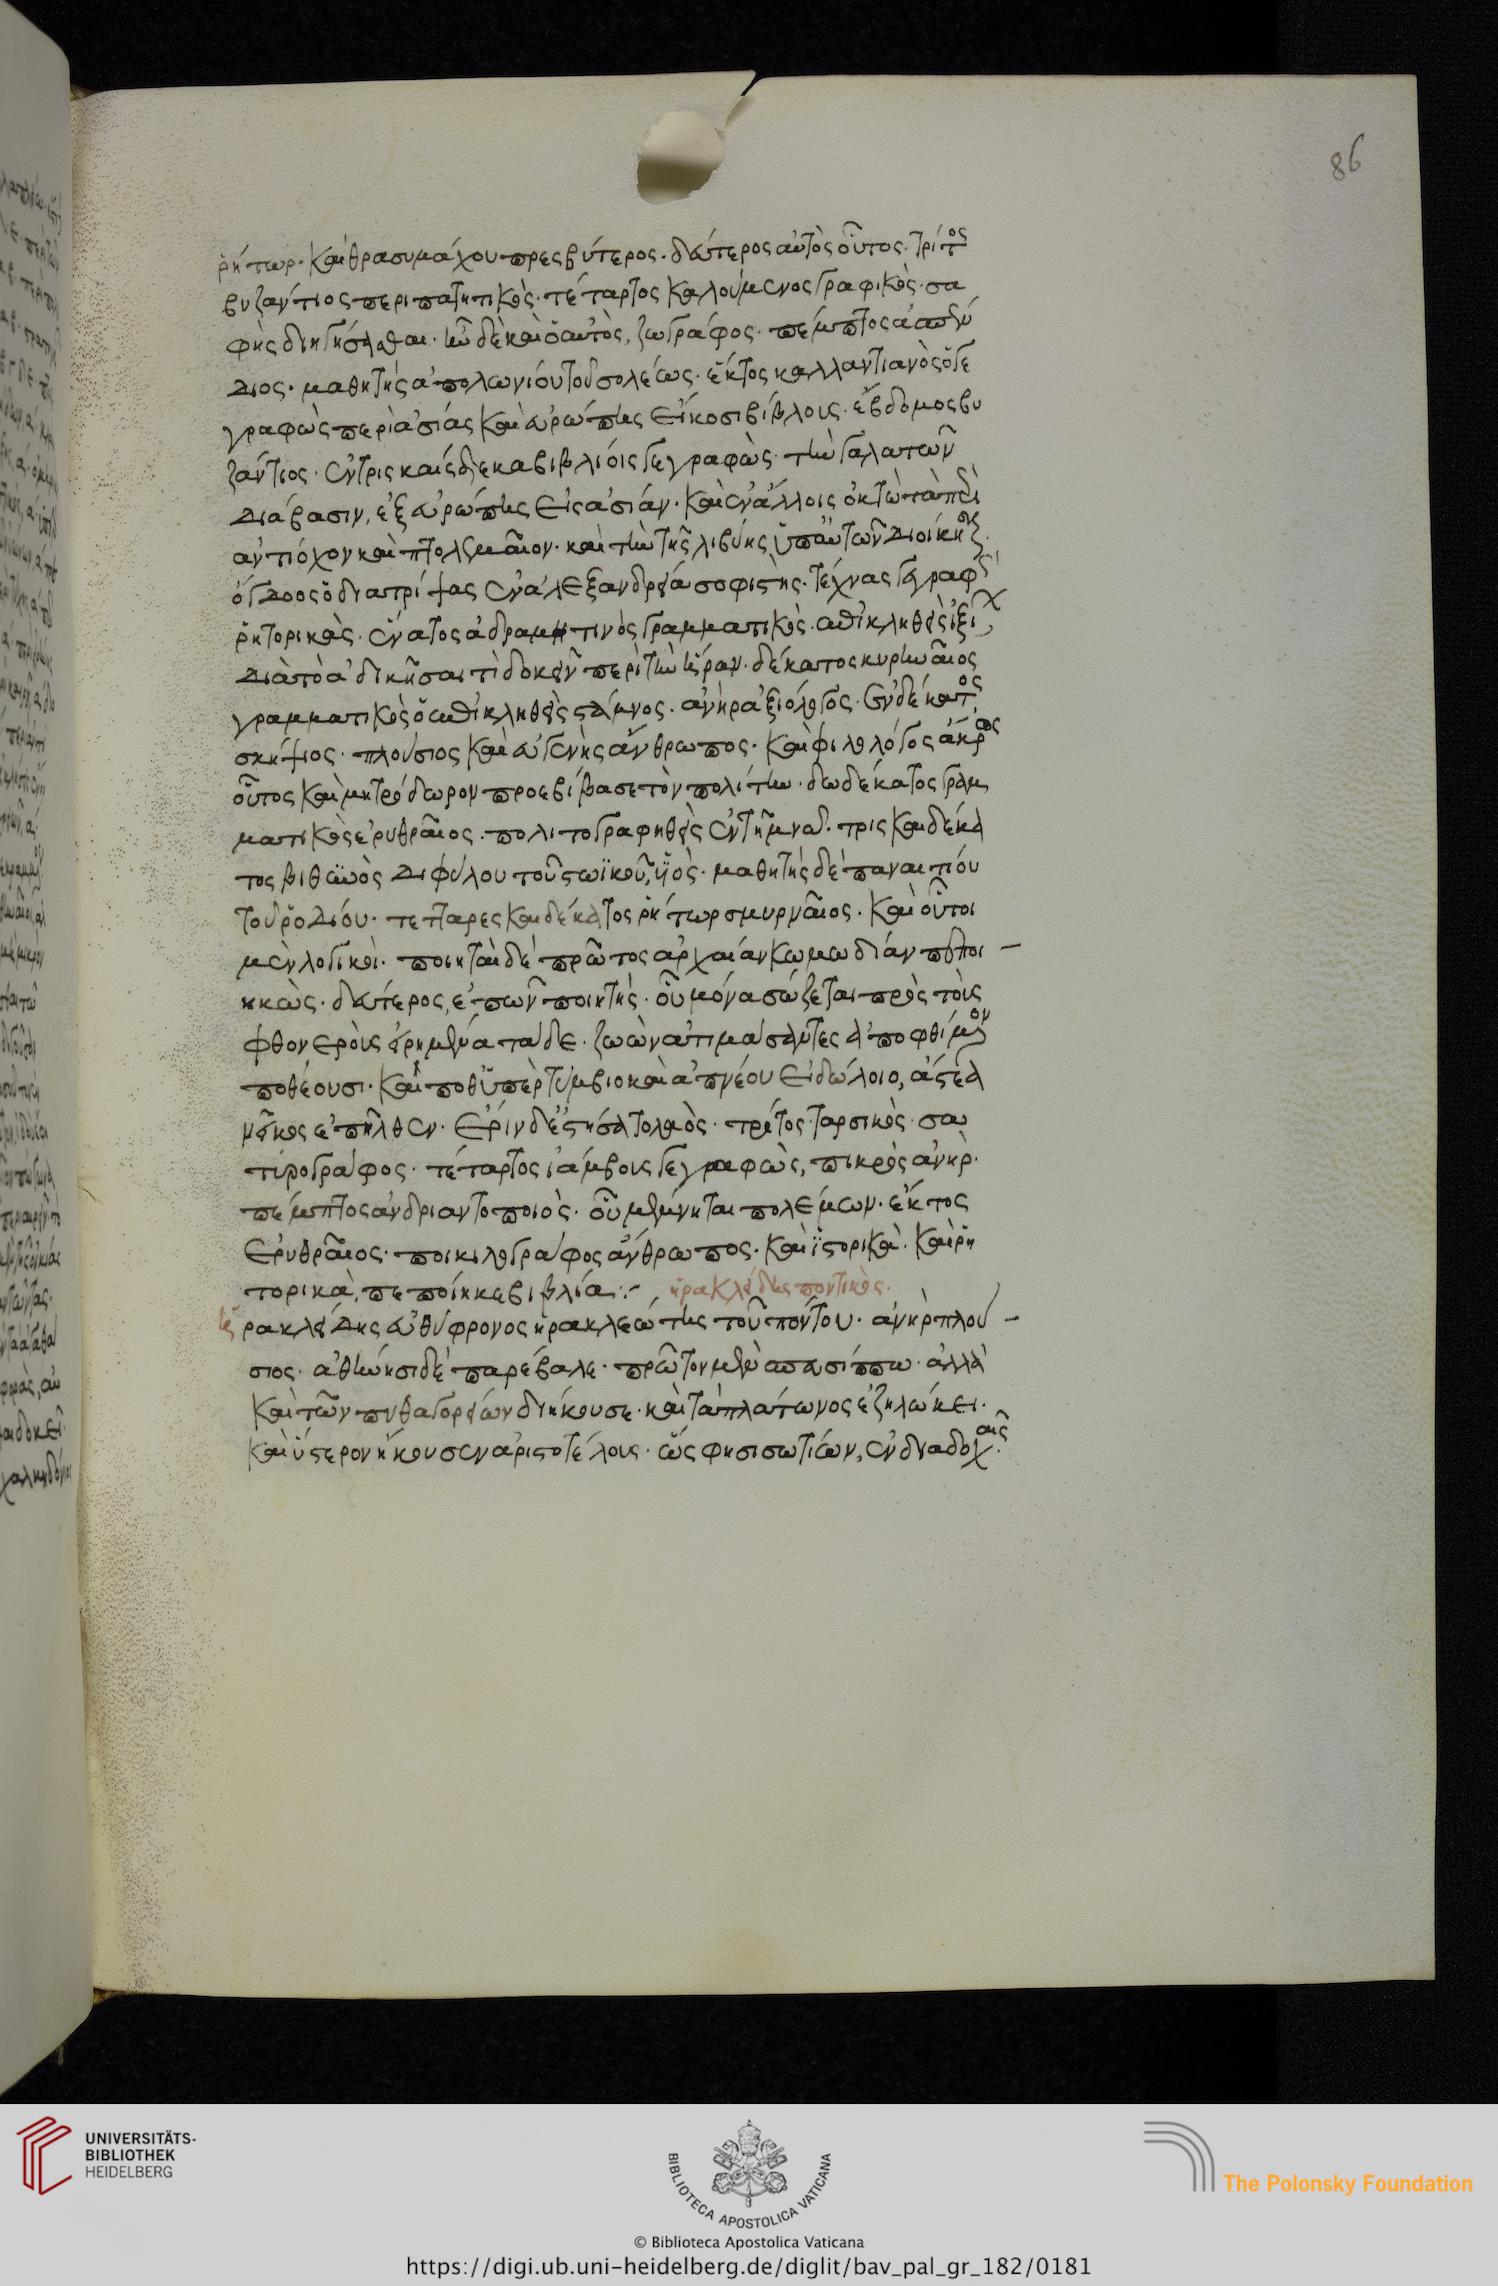 86
ῥήτωρ· καὶ θρασυμάχου πρεσβύτερος· δεύτερος αὐτὸς οὗτος· τρίτος
βυζάντιος περιπατητικὸς· τέταρτος καλούμενος γραφικὸς· σα
φὴς διηγήσασθαι· ἦν δὲ καὶ ὁ αὐτὸς, ζωγράφος· πέμπτος ἀσπέν
διος· μαθητὴς ἀπολωνίου τοῦ σολέως· ἕκτος καλλαντιανὸς ὁ γε
γραφὼς περὶ ἀσίας καὶ εὐρώπης εἴκοσι βίβλοις· ἕβδομος βυ
ζάντιος· ἐν τρὶς καίδεκα βιβλίοις γεγραφὼς· τὴν γαλατῶν
διάβασιν, ἐξ εὐρώπης εἰς ἀσίαν· καὶ ἐν ἄλλοις ὀκτὼ τὰ περὶ
ἀντίοχον καὶ πτολεμαῖον· καὶ τὴν τῆς λιβύης ὑπ' αὐτῶν διοίκησιν·
ὄγδοος ὁ διατρίψας ἐν ἀλεξανδρεία σοφιστὴς· τέχνας γεγραφὼς
ῥητορικὰς· ἔνατος ἀδραμυτινὸς γραμματικὸς· ἐπικληθεὶς ἰξίων
διὰ τὸ ἀδικῆσαι τὶ δοκεῖν περὶ τὴν ἥραν· δέκατος κυρηναῖος
γραμματικὸς ὁ ἐπικληθεὶς στάμνος· ἀνὴρ ἀξιόλογος· ἑνδέκατος
σκήψιος· πλούσιος καὶ εὐγενὴς ἄνθρωπος· καὶ φιλολόγος ἄκρως
οὗτος καὶ μητρόδωρον προεβίβασε τὸν πολίτην· δωδέκατος γραμ
ματικὸς ἐρυθραῖος· πολιτογραφηθεὶς ἐν τῆ μναδ· τρὶς καιδέκα
τος βιθυνὸς διφύλου τοῦ στωϊκοῦ, ὑϊὸς· μαθητὴς δὲ παναιτίου
τοῦ ῥοδίου· τετταρες καιδέκατος ῥήτωρ σμυρναῖος· καὶ οὗτοι
μὲν λογικοὶ· ποιηταὶ δὲ πρῶτος ἀρχαίαν κωμωδίαν πεποι –
ηκὼς· δεύτερος, ἐπῶν ποιητὴς· οὗ μόνα σώζεται πρὸς τοὺς
φθονεροὺς εἰρημένα τάδε· ζωὸν ἀτιμάσαντες ἀποφθίμενον
ποθέουσι· καί ποθ' ὑπὲρ τύμβιο καὶ ἀπνέου εἰδώλοιο, ἄστεα
νεῖκος ἐπῆλθεν· ἔριν δ' ἐστήσατο λαὸς· τρίτος ταρσικὸς· σα
τυρογράφος· τέταρτος ἰάμβους γεγραφὼς, πικρὸς ἀνὴρ·
πέμπτος ἀνδριαντοποιὸς· οὗ μέμνηται πολέμων· ἕκτος
ἐρυθραῖος· ποικιλογράφος ἄνθρωπος· καὶ ἱστορικὰ· καὶ ῥη
τορικὰ, πεποίηκε βιβλία :– ἡρακλείδης ποντικὸς·
ιε ρακλείδης εὐθύφρονος ἡρακλεώτης τοῦ πόντου· ἀνὴρ πλού –
σιος· ἀθήνησι δὲ παρέβαλε· πρῶτον μὲν σπευσίππω· ἀλλὰ
καὶ τῶν πυθαγορείων διήκουσε· καὶ τὰ πλάτωνος ἐζηλώκει·
καὶ ὕστερον ἤκουσεν ἀριστοτέλους· ὥς φησι σωτίων, ἐν διαδοχαῖς·
UNIVERSITÄTS-
BIBLIOTHEK
HEIDELBERG
BIBLIOTECA APOSTOLICA VATICANA
© Biblioteca Apostolica Vaticana
The Polonsky Foundation
https://digi.ub.uni-heidelberg.de/diglit/bav_pal_gr_182/0181